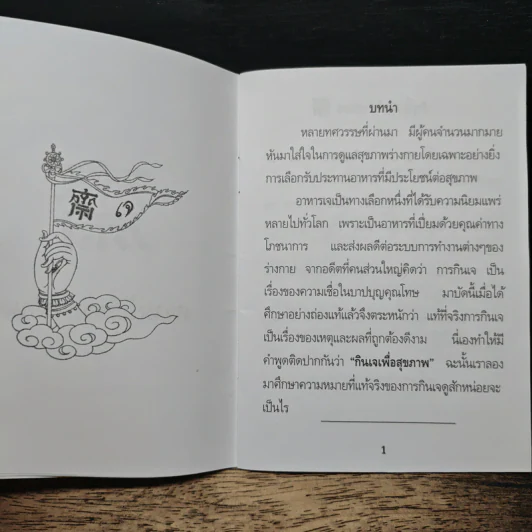 齋 เจ
บทนำ
หลายทศวรรษที่ผ่านมา มีผู้คนจำนวนมากมาย
หันมาใส่ใจในการดูแลสุขภาพร่างกายโดยเฉพาะอย่างยิ่ง
การเลือกรับประทานอาหารที่มีประโยชน์ต่อสุขภาพ
อาหารเจเป็นทางเลือกหนึ่งที่ได้รับความนิยมแพร่
หลายไปทั่วโลก เพราะเป็นอาหารที่เปี่ยมด้วยคุณค่าทาง
โภชนาการ และส่งผลดีต่อระบบการทำงานต่างๆของ
ร่างกาย จากอดีตที่คนส่วนใหญ่คิดว่า การกินเจ เป็น
เรื่องของความเชื่อในบาปบุญคุณโทษ มาบัดนี้เมื่อได้
ศึกษาอย่างถ่องแท้แล้วจึงตระหนักว่า แท้ที่จริงการกินเจ
เป็นเรื่องของเหตุและผลที่ถูกต้องดีงาม นี่เองทำให้มี
คำพูดติดปากกันว่า "กินเจเพื่อสุขภาพ" ฉะนั้นเราลอง
มาศึกษาความหมายที่แท้จริงของการกินเจดูสักหน่อยจะ
เป็นไร
1